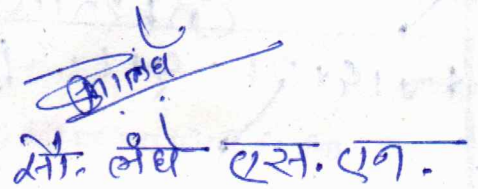 सौ. लंघे एस. एन.